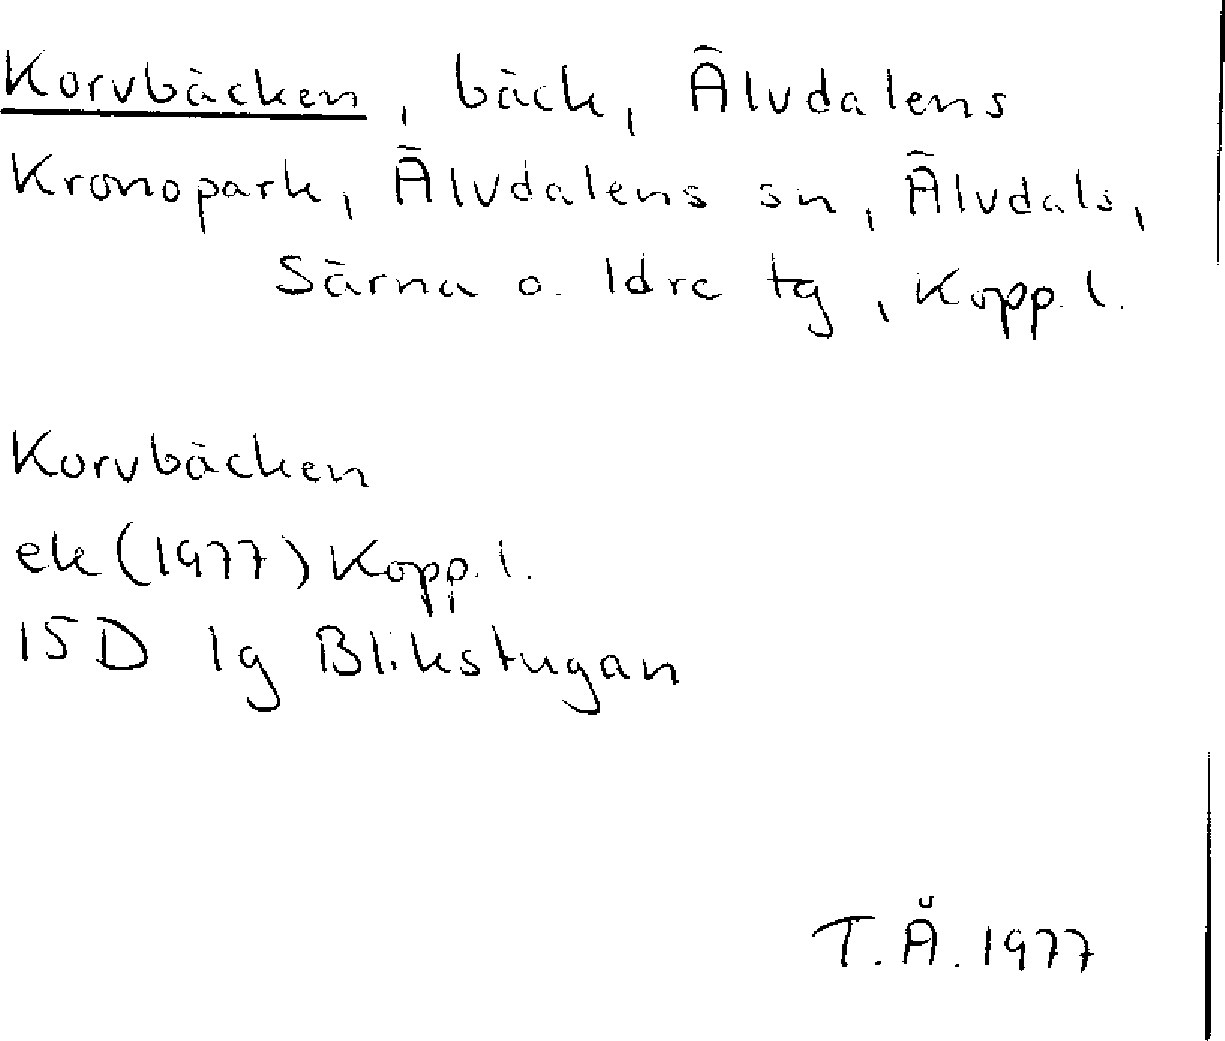 Korvbäcken, bäck, Älvdalens
Kronopark, Älvdalens sn, Älvdals,
Särna o. Idre tg, Kopp. l.
Korvbäcken
ek (1977) Kopp. l.
15D 1g Blikstugan
T.Å. 1977